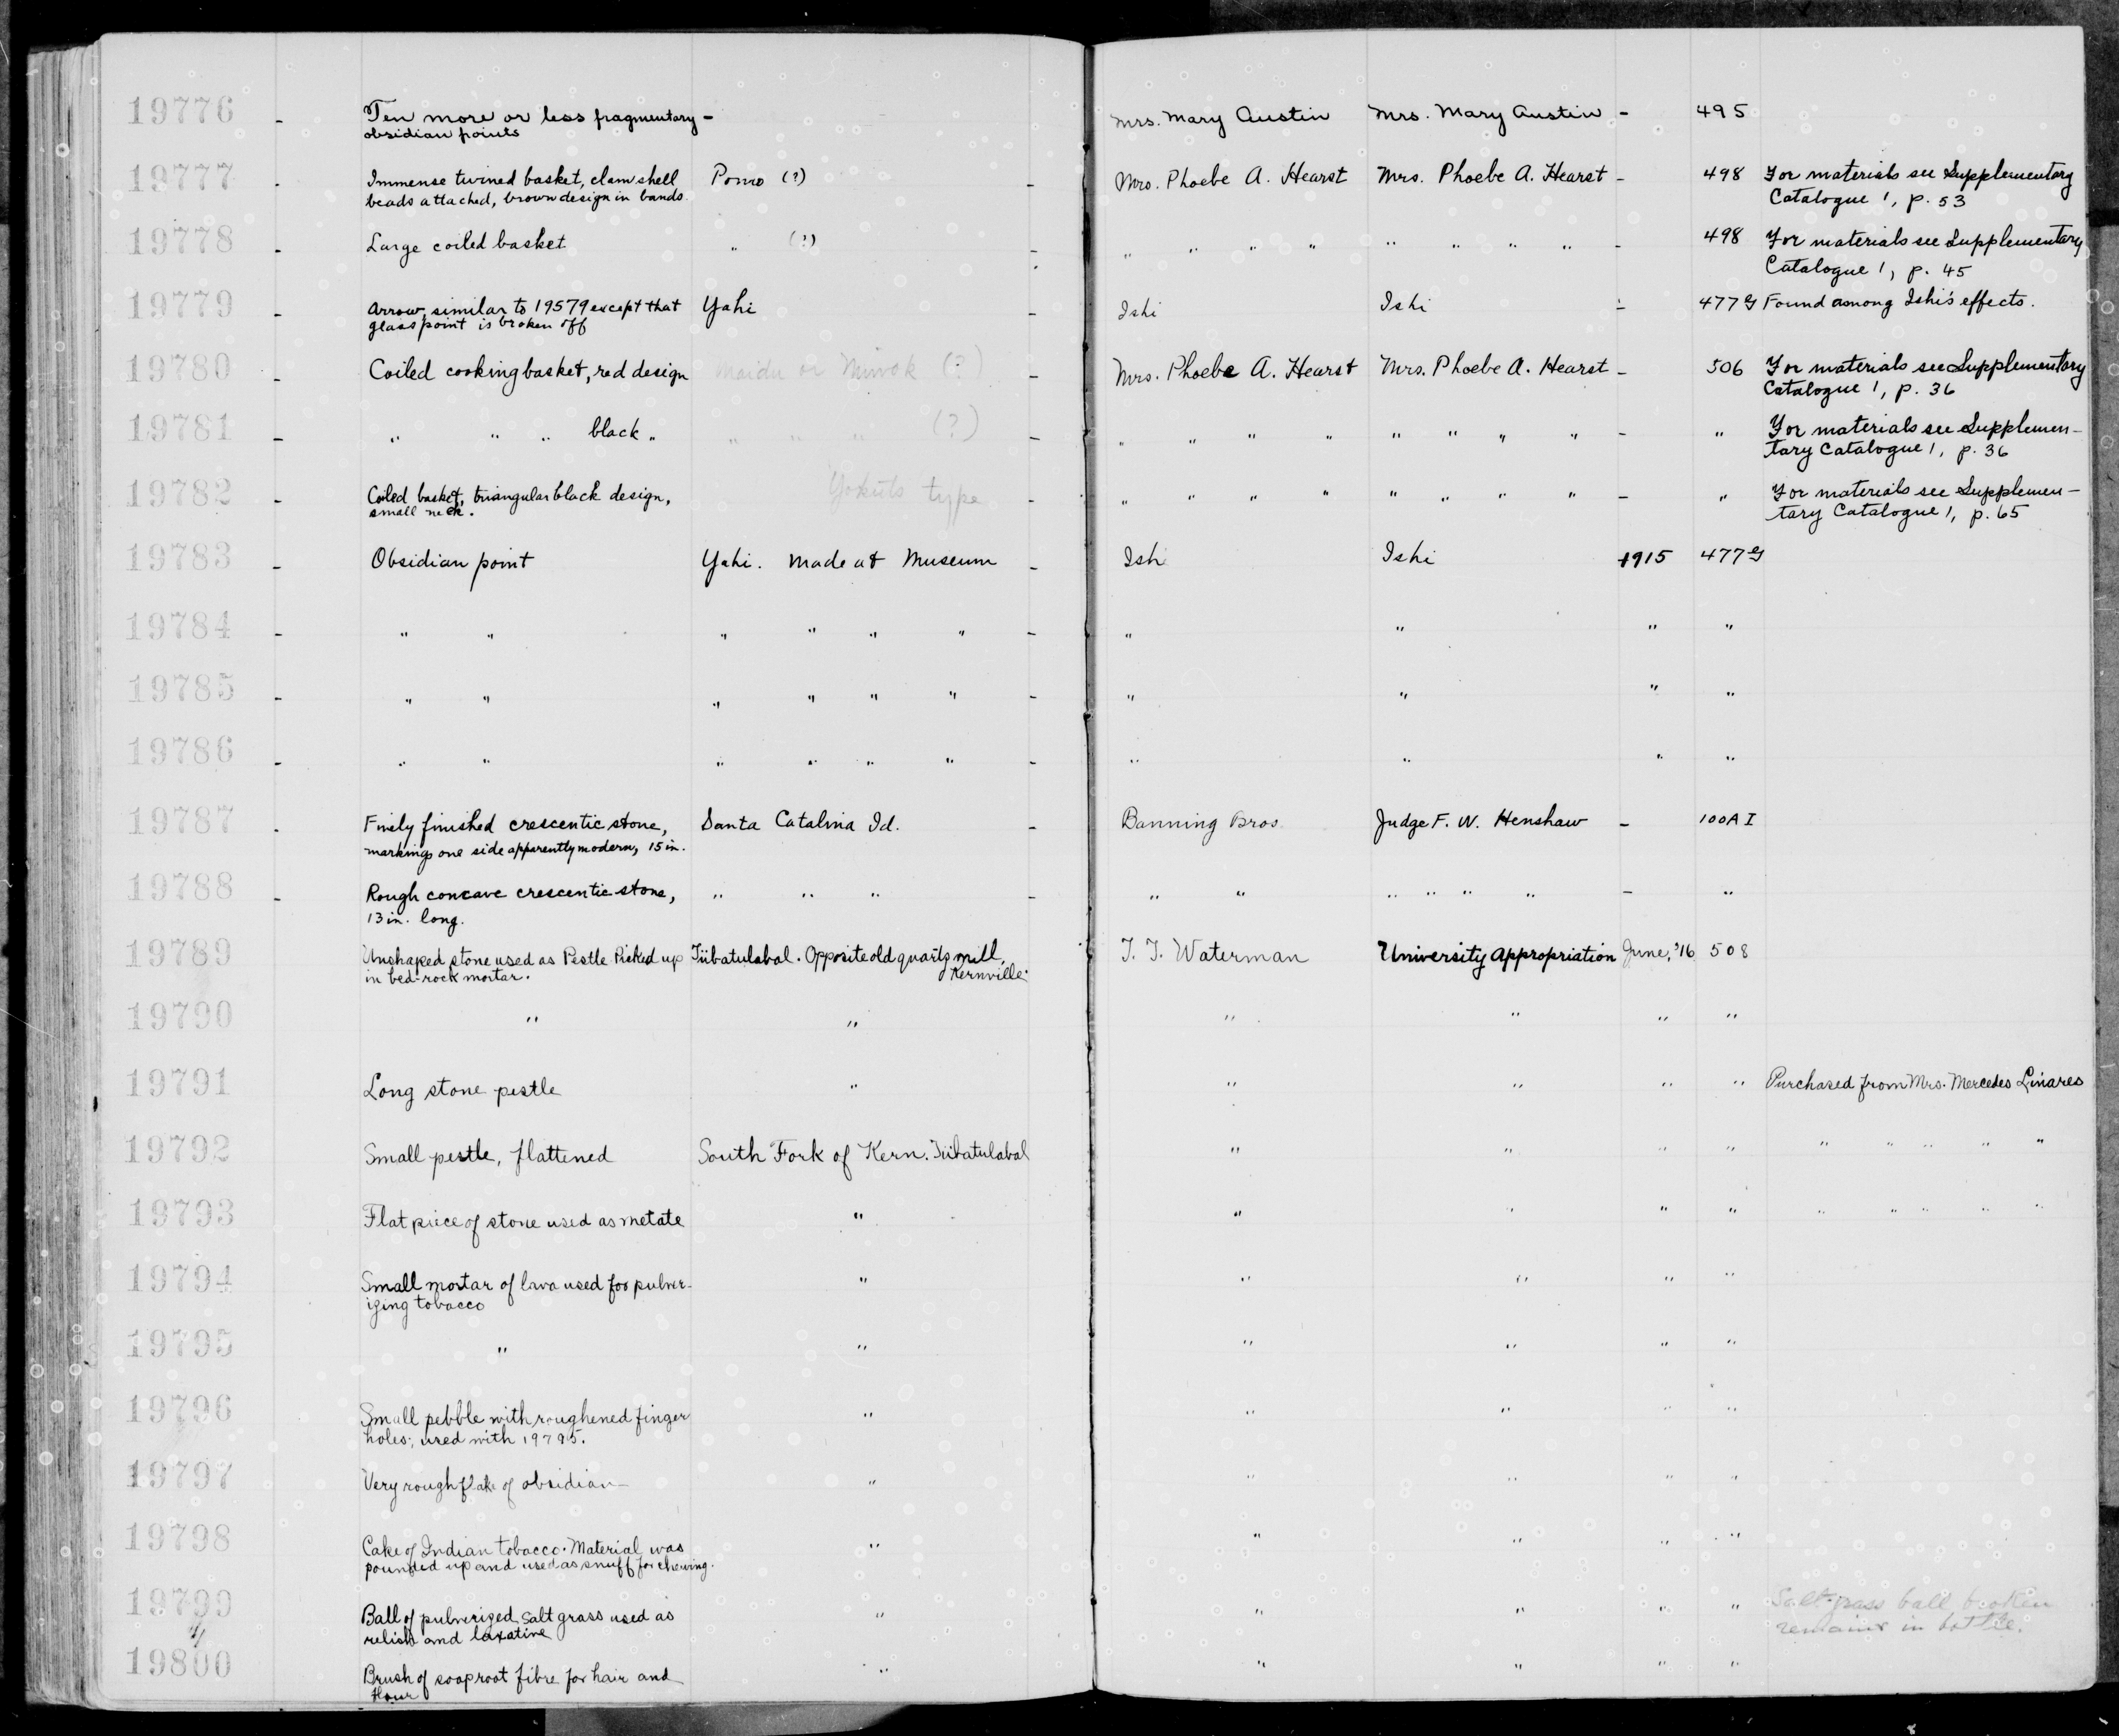 19776 - Ten more or less fragmentary - Mrs. Mary Austin Mrs. Mary Austin - 495
obsidian points
19777 - Immense twined basket, clam shell Pomo (?) - Mrs. Phoebe A. Hearst Mrs. Phoebe A. Hearst - 498 For materials see Supplementary
beads attached, brown design in bands. Catalogue 1, p. 53
19778 - Large coiled basket " (?) - " " " " " " " " - 498 For materials see Supplementary
Catalogue 1, p. 45
19779 - Arrow, similar to 19579 except that Yahi - Ishi Ishi - 477 G Found among Ishi's effects.
glass point is broken off
19780 - Coiled cooking basket, red design Maidu or Miwok (?) - Mrs. Phoebe A. Hearst Mrs. Phoebe A. Hearst - 506 For materials see Supplementary
Catalogue 1, p. 36
19781 - " " " black " " " " (?) - " " " " " " " " - " For materials see Supplemen-
tary Catalogue 1, p. 36
19782 - Coiled basket, triangular black design, Yokuts type - " " " " " " " " - " For materials see Supplemen-
small neck. tary Catalogue 1, p. 65
19783 - Obsidian point Yahi. Made at Museum - Ishi Ishi 1915 477 G
19784 - " " " " " " - " " " "
19785 - " " " " " " - " " " "
19786 - " " " " " " - " " " "
19787 - Finely finished crescentic stone, Santa Catalina Id. - Banning Bros. Judge F. W. Henshaw - 100A I
markings one side apparently modern, 15 in.
19788 - Rough concave crescentic stone, " " " - " " " " " " - "
13 in. long.
19789 Unshaped stone used as Pestle Picked up Tübatulabal. Opposite old quartz mill, T. T. Waterman University Appropriation June, '16 508
in bed-rock mortar. Kernville.
19790 " " " " " "
19791 Long stone pestle " " " " " Purchased from Mrs. Mercedes Linares
19792 Small pestle, flattened South Fork of Kern. Tübatulabal " " " " " " " " "
19793 Flat piece of stone used as metate " " " " " " " " " "
19794 Small mortar of lava used for pulver- " " " " "
izing tobacco
19795 " " " " " "
19796 Small pebble with roughened finger " " " " "
holes; used with 19795.
19797 Very rough flake of obsidian " " " " "
19798 Cake of Indian tobacco. Material was " " " " "
pounded up and used as snuff for chewing.
19799 Ball of pulverized salt grass used as " " " " " Salt-grass ball broken
relish and laxative remains in bottle.
19800 Brush of soaproot fibre for hair and " " " " "
flour